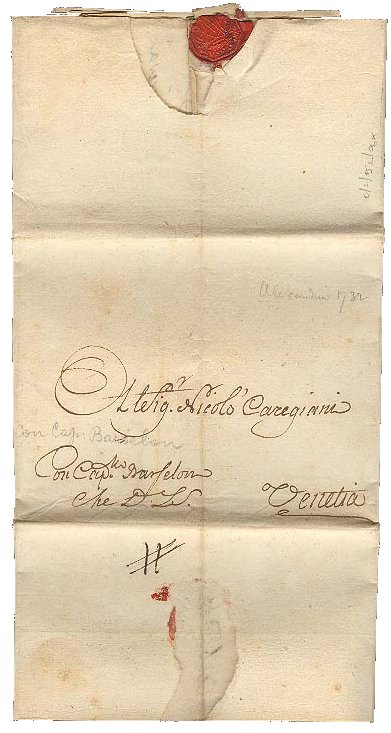 Alexandria 1732
Al Sigr. Nicolò Caregiani
Con Cap. Barselon
Con Cap.no Barselon
Che D. S.
Venetia